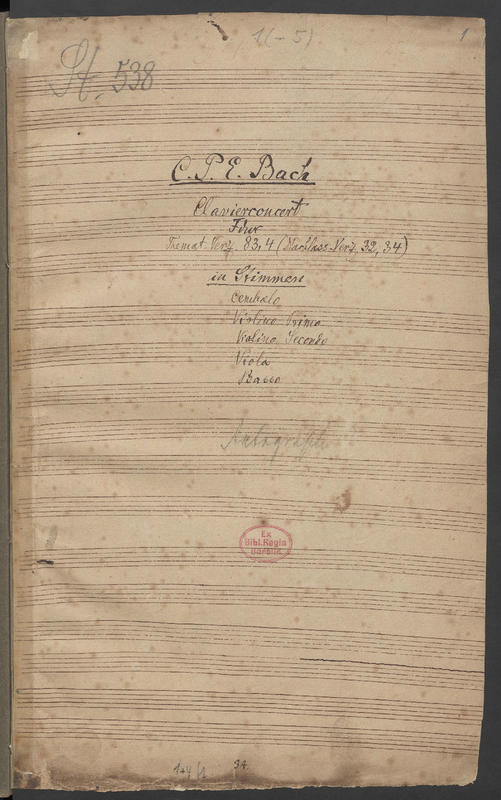 1(-5)
1
St. 538
C. P. E. Bach
Clavierconcert
Fdur
Themat. Verz. 83,4 (Nachlass-Verz. 32, 34)
in Stimmen
Cembalo
Violino Primo
Violino Secondo
Viola
Basso
Autograph
Ex
Bibl. Regia
Berolin.
34.